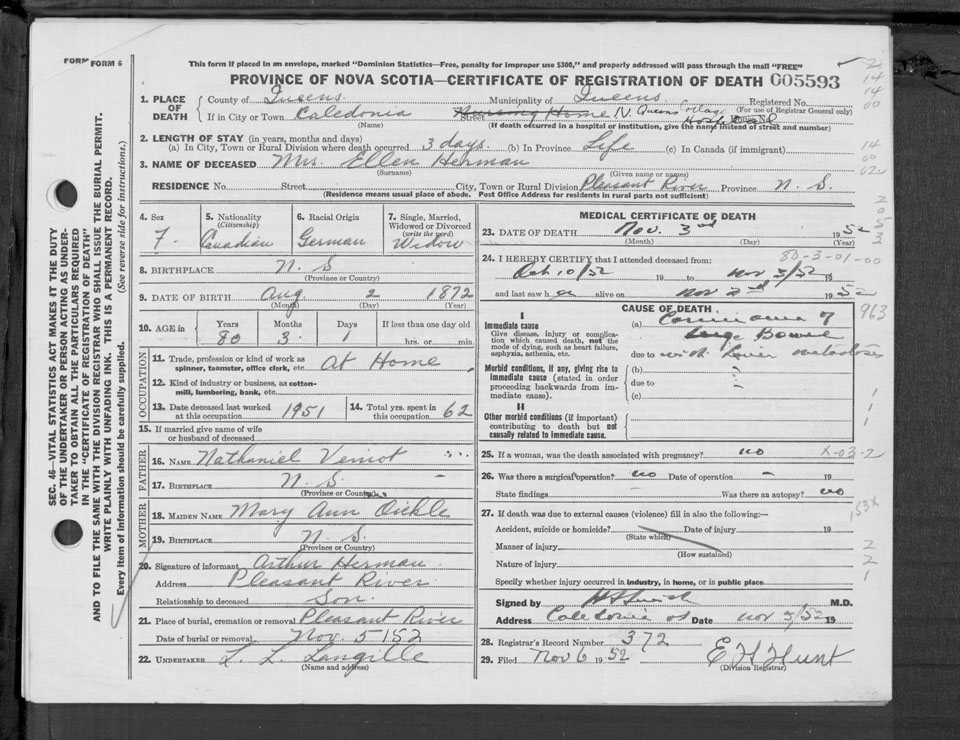 FORM FORM 6
This form if placed in an envelope, marked "Dominion Statistics—Free, penalty for improper use $300," and properly addressed will pass through the mail "FREE"
PROVINCE OF NOVA SCOTIA—CERTIFICATE OF REGISTRATION OF DEATH 005593
1. PLACE OF DEATH
County of Queens Municipality of Queens Registered No.
(For use of Registrar General only)
If in City or Town Caledonia Street Nursing Home N. Queens Cottage Hospital House No.
(Name) (If death occurred in a hospital or institution, give the name instead of street and number)
2. LENGTH OF STAY (in years, months and days)
(a) In City, Town or Rural Division where death occurred 3 days (b) In Province Life (c) In Canada (if immigrant)
3. NAME OF DECEASED Mrs. Ellen Herman
(Surname) (Given name or names)
RESIDENCE No. Street City, Town or Rural Division Pleasant River Province N. S.
(Residence means usual place of abode. Post Office Address for residents in rural parts not sufficient)
SEC. 46—VITAL STATISTICS ACT MAKES IT THE DUTY
OF THE UNDERTAKER OR PERSON ACTING AS UNDER-
TAKER TO OBTAIN ALL THE PARTICULARS REQUIRED
IN THE "CERTIFICATE OF REGISTRATION OF DEATH"
AND TO FILE THE SAME WITH THE DIVISION REGISTRAR WHO SHALL ISSUE THE BURIAL PERMIT.
WRITE PLAINLY WITH UNFADING INK. THIS IS A PERMANENT RECORD.
Every item of Information should be carefully supplied. (See reverse side for instructions.)
4. Sex F.
5. Nationality (Citizenship) Canadian
6. Racial Origin German
7. Single, Married, Widowed or Divorced (write the word) Widow
8. BIRTHPLACE N. S
(Province or Country)
9. DATE OF BIRTH Aug. 2 1872
(Month) (Day) (Year)
10. AGE in Years 80 Months 3 Days 1 If less than one day old hrs. or min.
OCCUPATION
11. Trade, profession or kind of work as spinner, teamster, office clerk, etc. At Home
12. Kind of industry or business, as cotton-mill, lumbering, bank, etc.
13. Date deceased last worked at this occupation 1951
14. Total yrs. spent in this occupation 62
15. If married give name of wife or husband of deceased
FATHER
16. NAME Nathaniel Veniot
17. BIRTHPLACE N. S.
(Province or Country)
MOTHER
18. MAIDEN NAME Mary Ann Oickle
19. BIRTHPLACE N. S.
(Province or Country)
20. Signature of informant Arthur Herman
Address Pleasant River
Relationship to deceased Son
21. Place of burial, cremation or removal Pleasant River
Date of burial or removal Nov. 5 1952
22. UNDERTAKER L. L. Langille
(Name and address)
MEDICAL CERTIFICATE OF DEATH
23. DATE OF DEATH Nov. 3rd 1952
(Month) (Day) (Year)
24. I HEREBY CERTIFY that I attended deceased from: 80-3-01-00
Oct 10/52 19 to Nov 3/52 19
and last saw h er alive on Nov 2nd 1952
CAUSE OF DEATH
I
Immediate cause
Give disease, injury or complication which caused death, not the mode of dying, such as heart failure, asphyxia, asthenia, etc.
(a) Carcinoma of
Large Bowel
due to with Liver metastases
Morbid conditions, if any, giving rise to immediate cause (stated in order proceeding backwards from immediate cause).
(b)
due to
(c)
II
Other morbid conditions (if important) contributing to death but not causally related to immediate cause.
25. If a woman, was the death associated with pregnancy? no
26. Was there a surgical operation? no Date of operation – 19
State findings – Was there an autopsy? no
27. If death was due to external causes (violence) fill in also the following:—
Accident, suicide or homicide? Date of injury 19
(State which)
Manner of injury
(How sustained)
Nature of injury
Specify whether injury occurred in industry, in home, or in public place
Signed by M.D.
Address Caledonia NS Date Nov 3/52 19
28. Registrar's Record Number 372
29. Filed Nov 6 1952 E H Hunt
(Division Registrar)
2
14
14
00
14
00
02
963
1
1
1
X-03-2
153X
2
2
1